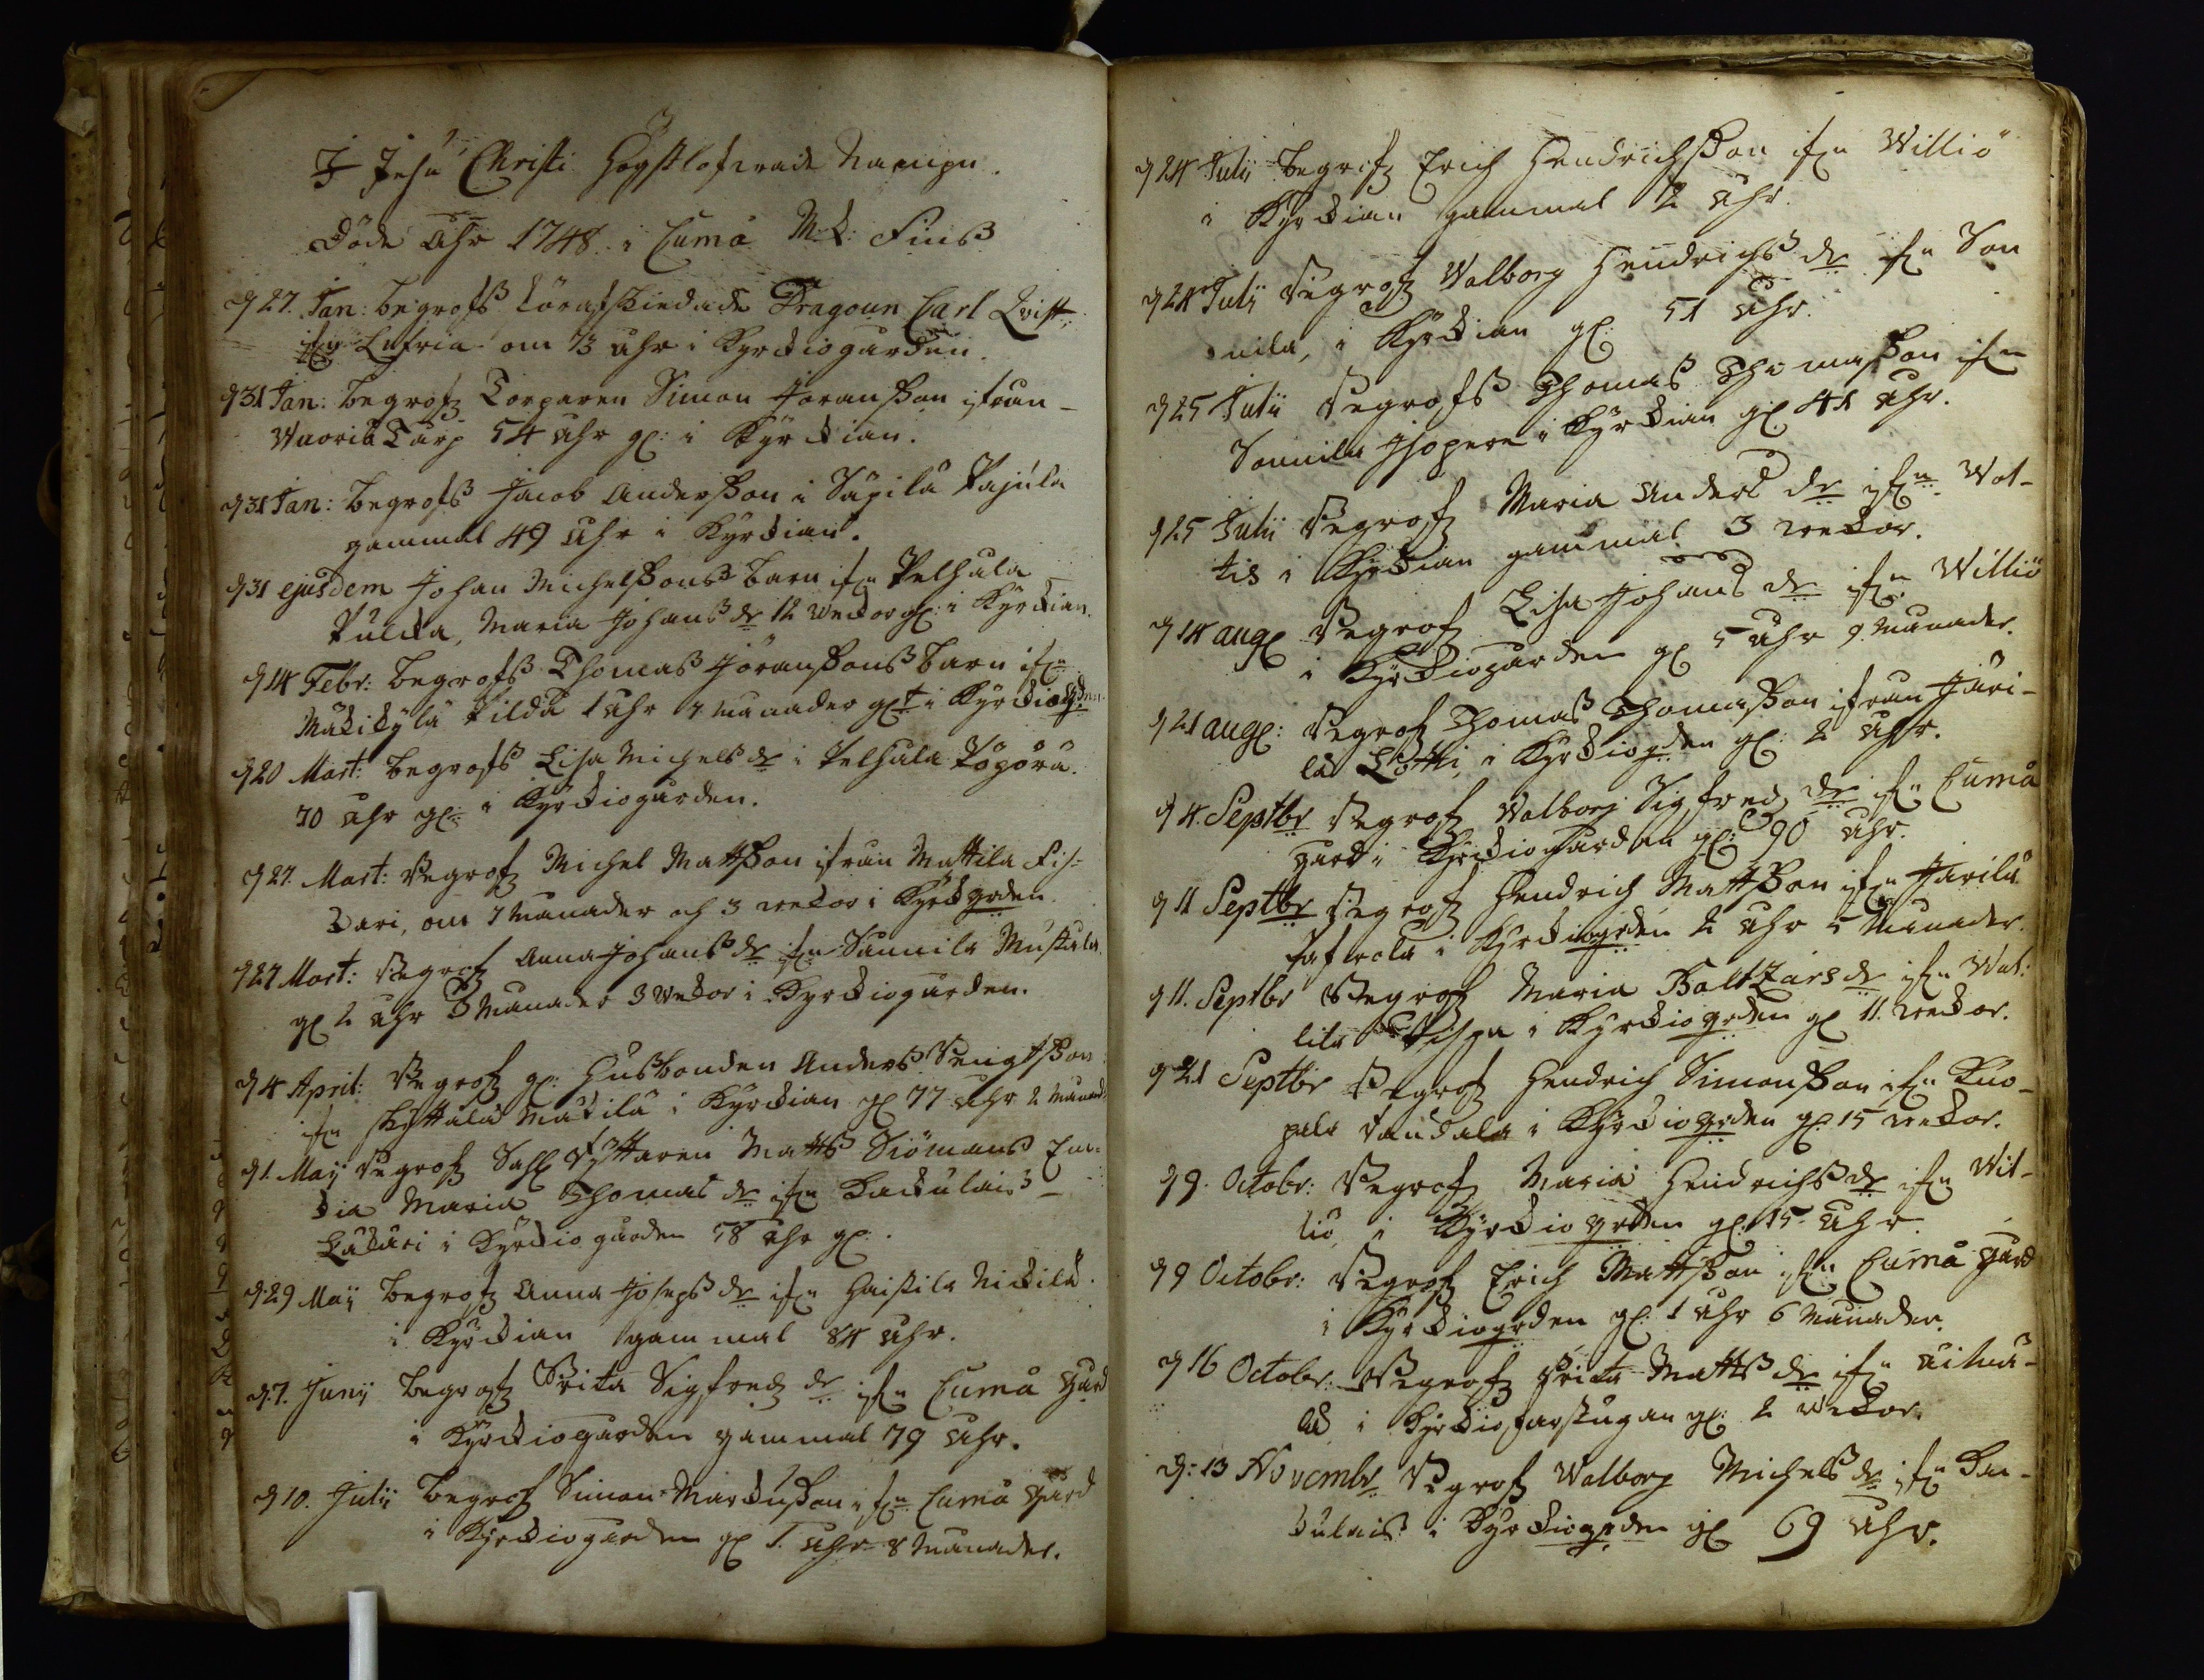 I Jesu Christi Högstlofwade Nampn.
Döde Åhr 1748. i Cumå M:K: Finß
d 27. Jan: begrofs Dragoun Carl Qvist,
om 73 åhr i Kyrckiogården.
d 31 Jan: begrofz Torparen Simon Jöranßon ifrån
Torp 54 åhr gl: i Kyrckian.
d 31 Jan: begrofs Jacob Anderßon i Säpilä Pajula
gammal 49 åhr i Kyrckian.
d 31 ejusdem Johan Michelßons barn ifn Pelhala
Maria Johansdr 12 weckor gl: i Kyrckian.
d 14 Febr: begrofs Thomas Jöranßons barn ifn
1 åhr 7 månader glt i
d 20 Mart: begrofs Lisa Michelsdr i Pelhala
70 åhr gl: i Kyrckiogården.
d 27. Mart: Begrofz Michel Mattßon ifrån Mattila Fis-
kari, om 7 månader och 3 weckor i Kyrckgrden.
d 27 Mart: Begrofz Anna Johansdr ifn Sunnila Mustala
gl 2 åhr 3 Månader 3 weckor i Kyrckiogården.
d 4 April: Begrofz gl: Husbonden Anders Bengtßon
ifn i Kyrckian gl 77 åhr 2 Månad:
d 1. Maij Begrofz Sahl Ryttaren Matts Siömans En-
kia Maria Thomasdr ifn Kackulais
i Kyrckiogården 58 åhr gl:.
d 29 Maij begrofz Anna Josepsdr ifn Haistila Nickilä
i Kyrckian gammal 84 åhr.
d. 7. Junij begrofz Brita Sigfredz dr ifn Cumå gård
i Kyrckiogården gammal 79 åhr.
d 10. Julii begrofz Simon Marcusßon ifn Cumå gård
i Kyrckiogården gl 1. åhr 8 Månader.
d 24 Julii begrofz Erich Hendrichßon ifn Williö
i Kyrckian gammal 2 åhr.
d 24 Julij Begrofz Walborg Hendrichsdr ifn Son
nila, i Kyrckian gl: 51 åhr.
d 25 Julii Begrofs Thomas Thomasßon ifn
Sonnila i Kyrckian gl 41 åhr.
d 25 Julii Begrofz Maria Andersdr ifn Wal-
tis i Kyrckian gammal 3 weckor.
d 14 aug Begrofz Lisa Johansdr ifn Williö
i Kyrckiogården gl 5 åhr 9 månader.
d 21 aug: Begrofz Thomas Thomasßon ifrån Järi-
lä i Kyrckiogrden gl: 2 åhr.
d 4. Septbr Begrofz Walborg Sigfredz dr ifn Cumå
gård i Kyrckiogården gl: 90 åhr.
d 11 Septbr Begrofz Hendrich Mattßon ifn Järilä
i Kyrckiogrden 2 åhr 5 Månader.
d 11. Septbr Begrofz Maria Baltzarsdr ifn Wal:
lila i Kyrckiogrden gl 11. weckor.
d 21 Septbr Begrofz Hendrich Simonßon ifn Kuo-
pala i Kyrckiogrden gl: 15 weckor.
d 9. Octobr: Begrofz Maria Hendrichsdr ifn Wil-
liö i Kyrckiogrden gl: 15. åhr.
d 9 Octobr: Begrofz Erich Mattßon ifn Cumå gård
i Kyrckiogrden gl: 1 åhr 6 Månader.
d 16 Octobr: Begrofz Brita Mattsdr ifn
i gl: 2 weckor.
d: 13 Novembr Begrofz Walborg Michelsdr ifn Kac-
kulais i Kyrckiogrden gl 69 åhr.